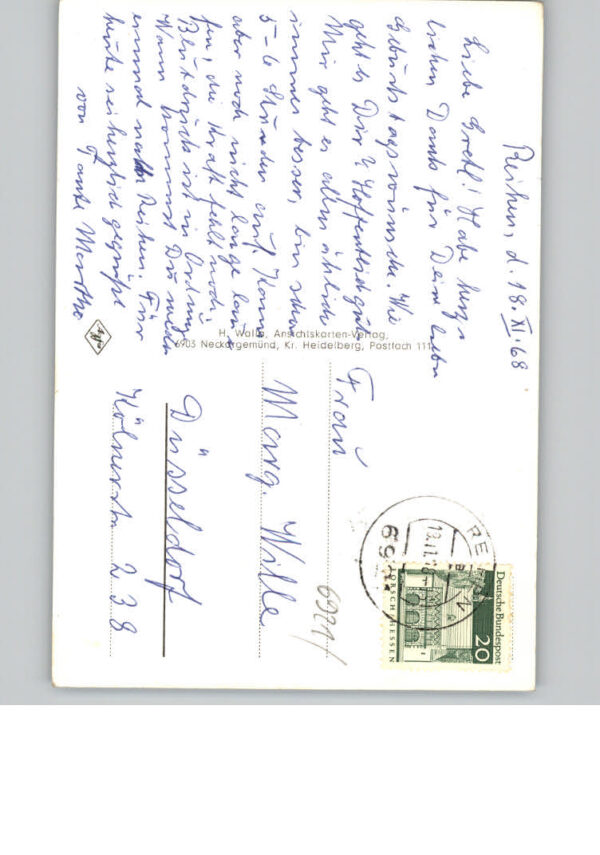 Reihen, d. 18. XI. 68
Liebe Gretl! Habe herz-
lichen Dank für Dein lieben
Geburtstagswünsche. Wie
geht es Dir? Hoffentlich gut.
Mir geht es allen ähnlich
immer besser, bin schon
5-6 Stunden auf. Kann
aber noch nicht lange lau-
fen, die Kraft fehlt noch.
Blutdruck ist in Ordnung
Wann kommst Du mal
einmal nach Reihen. Für
heute sei herzlich gegrüßt
von Tante Martha
H. Walle, Ansichtskarten-Verlag,
6903 Neckargemünd, Kr. Heidelberg, Postfach 111
Frau
Marg. Wille
Düsseldorf
Kölnerstr. 238
6921/
Deutsche Bundespost
20
LORSCH HESSEN